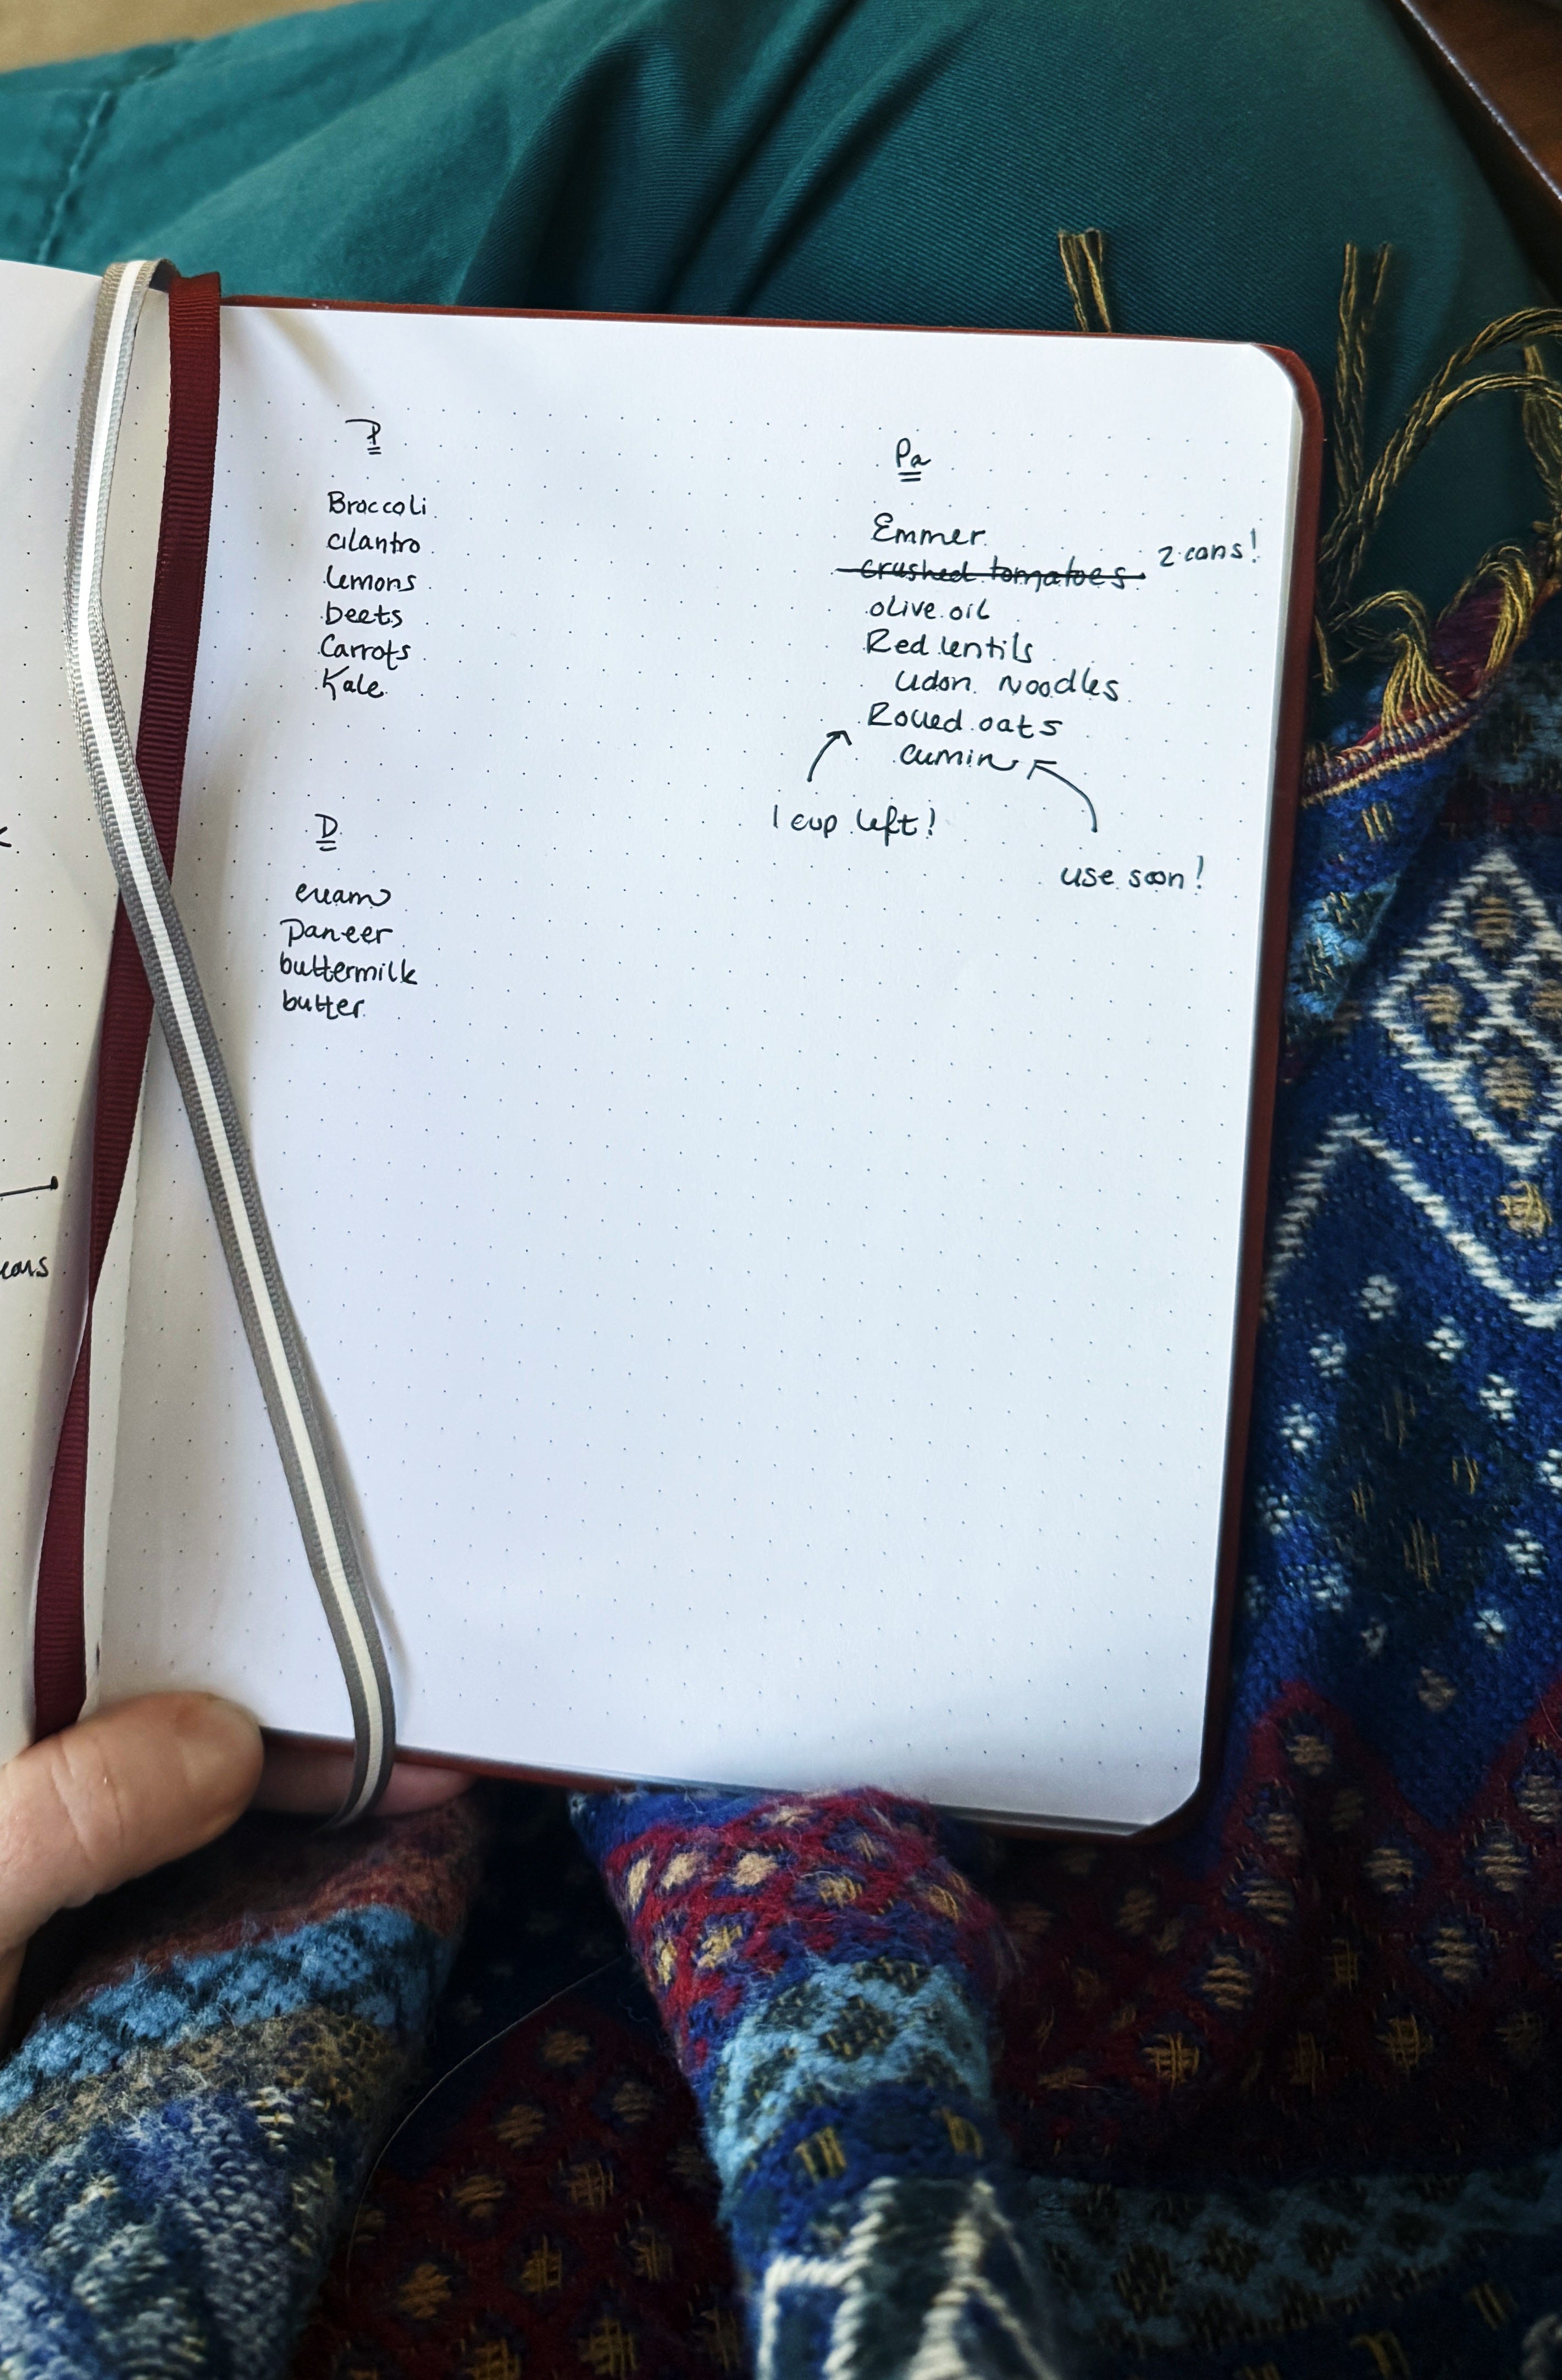 P
Broccoli
cilantro
lemons
beets
Carrots
Kale
D
cream
Paneer
buttermilk
butter
Pa
Emmer
crushed tomatoes 2 cans!
olive oil
Red lentils
udon noodles
Rolled oats
cumin
1 cup left!
use soon!